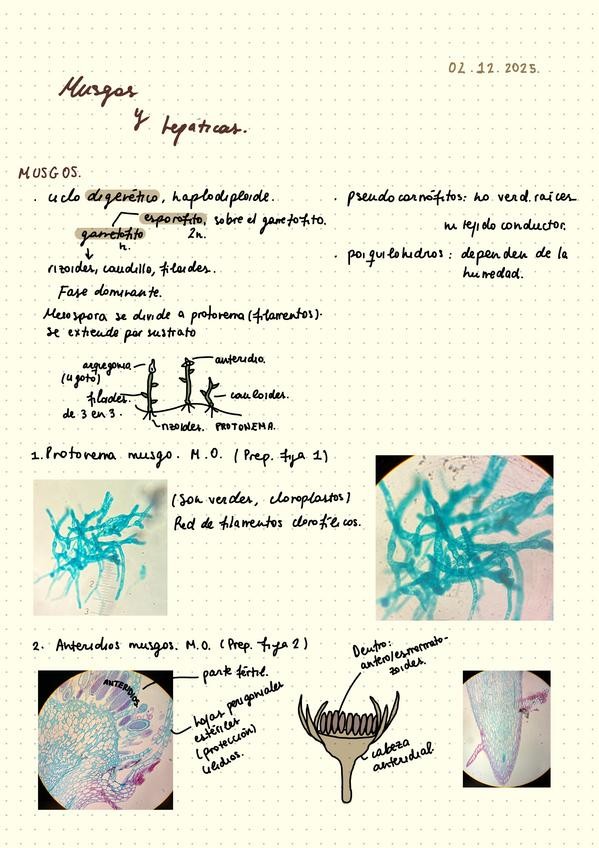 02.12.2025.
Musgos
y
hepáticas.
MUSGOS.
· ciclo digenético, haplodiploide.
esporofito, sobre el gametofito.
gametofito 2n.
n.
rizoides, caudillo, filoides.
Fase dominante.
Meiospora se divide a protonema (filamentos).
se extiende por sustrato
· pseudocormófitos: no verd. raíces
ni tejido conductor.
· poiquilohidros: dependen de la
humedad.
arquegonio
(cigoto)
filoides
de 3 en 3.
anteridio.
cauloides.
rizoides. PROTONEMA.
1. Protonema musgo. M.O. (Prep. fija 1)
(Son verdes, cloroplastos)
Red de filamentos clorofílicos.
2
3
2. Anteridios musgos. M.O. (Prep. fija 2)
ANTERIDIOS
parte fértil.
hojas perigoniales
estériles
(protección)
Dentro:
antero/espermato-
zoides.
cabeza
anteridial.